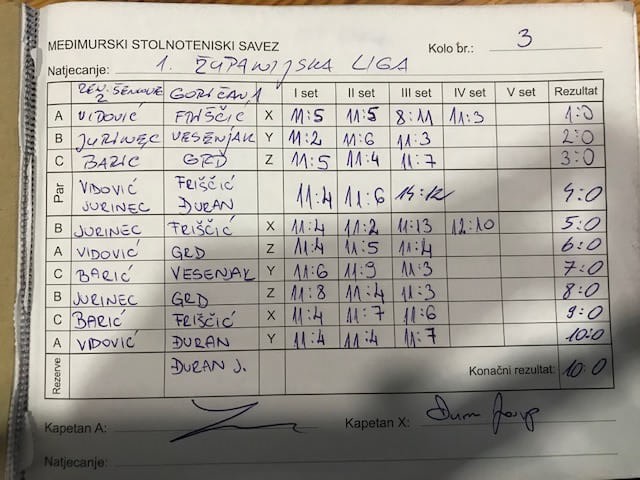 MEĐIMURSKI STOLNOTENISKI SAVEZ
Kolo br.: 3
Natjecanje: 1. ŽUPANIJSKA LIGA
2 GORIČAN 1 I set II set III set IV set V set Rezultat
A VIDOVIĆ FRIŠČIĆ X 11:5 11:5 8:11 11:3 1:0
B JURINEC VESENJAK Y 11:2 11:6 11:3 2:0
C BARIĆ GRD Z 11:5 11:4 11:7 3:0
Par VIDOVIĆ JURINEC FRIŠČIĆ ĐURAN 11:4 11:6 14:12 4:0
B JURINEC FRIŠČIĆ X 11:4 11:2 11:13 12:10 5:0
A VIDOVIĆ GRD Z 11:4 11:5 11:4 6:0
C BARIĆ VESENJAK Y 11:6 11:9 11:3 7:0
B JURINEC GRD Z 11:8 11:4 11:3 8:0
C BARIĆ FRIŠČIĆ X 11:4 11:7 11:6 9:0
A VIDOVIĆ ĐURAN Y 11:4 11:4 11:7 10:0
Rezerve ĐURAN J. Konačni rezultat: 10:0
Kapetan A: Kapetan X:
Natjecanje: